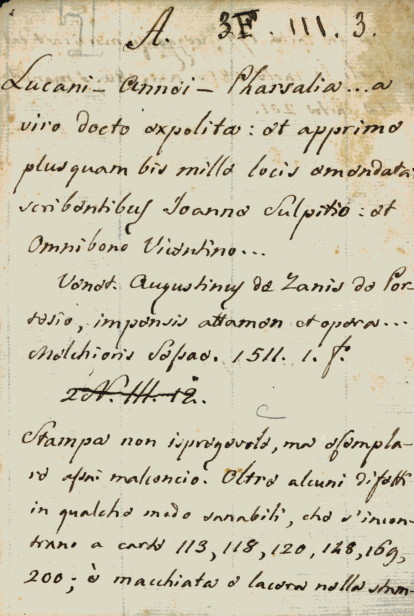 A. 3F. III. 3.
Lucani - Annei - Pharsalia... a
viro docto expolita: et apprime
plusquam bis mille locis emendata
scribentibus Joanne Sulpitio: et
Omnibono Vicentino...
Venet. Augustinus de Zanis de Por-
tesio, impensis attamen et opera...
Melchioris Sessae. 1511. 1. f.
2N. III. 12.
Stampa non ispregevole, ma esempla-
re assai malconcio. Oltre alcuni difetti
in qualche modo sanabili, che s'incon-
trano a carte 113, 118, 120, 128, 169,
200; è macchiata e lacera nella stam-